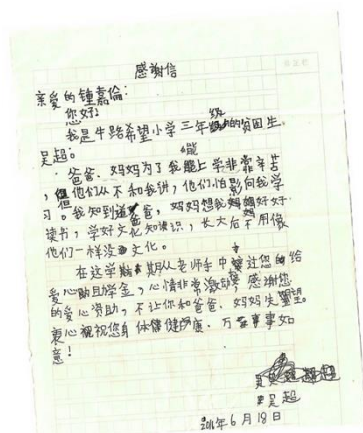 感谢信
亲爱的锺嘉倫:
您好!
我是牛路希望小学三年级的贫困生
吴超。
爸爸、妈妈为了我能上学非常辛苦
,但他们从不和我讲,他们怕影向我学
习。我知到道爸爸,妈妈想我好好
读书,学好文化知识,长大后不用像
他们一样没文化。
在这学期从老师手中接过您的给
爱心助学金,心情非常激动,感谢您
的爱心资助,不让你和爸爸、妈妈失望。
衷心祝您身体健康、万事事如
意!
吴超
2016年6月18日